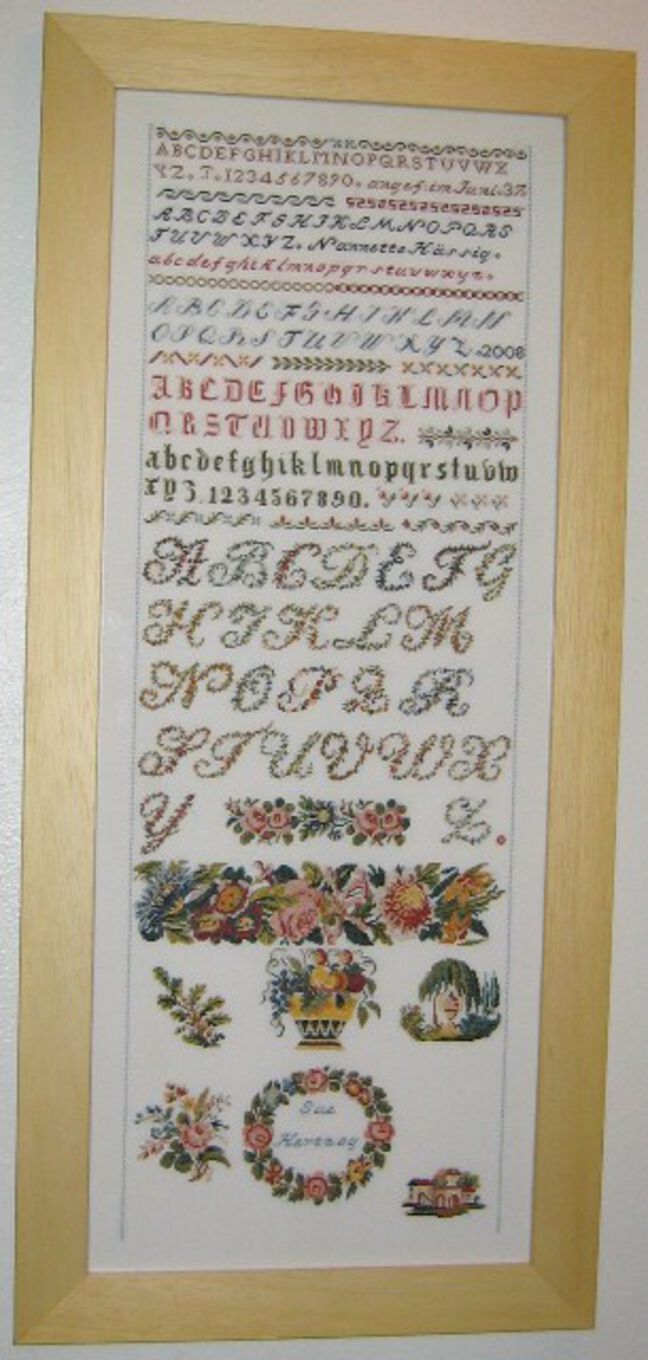 ABCDEFGHIKLMNOPQRSTUVWX
YZ. 1234567890. angef: im Juni 37
ABCDEFGHIKLMNOPQRS
TUVWXYZ. Nannette Hässig.
abcdefghiklmnopqrstuvwxyz.
ABCDEFGHIKLMN
OPQRSTUVWXYZ. 2008
ABCDEFGHIKLMNOP
QRSTUVWXYZ.
abcdefghiklmnopqrstuvw
xyz. 1234567890.
ABCDEFG
HIKLM
NOPQR
STUVWX
Y Z.
Sue